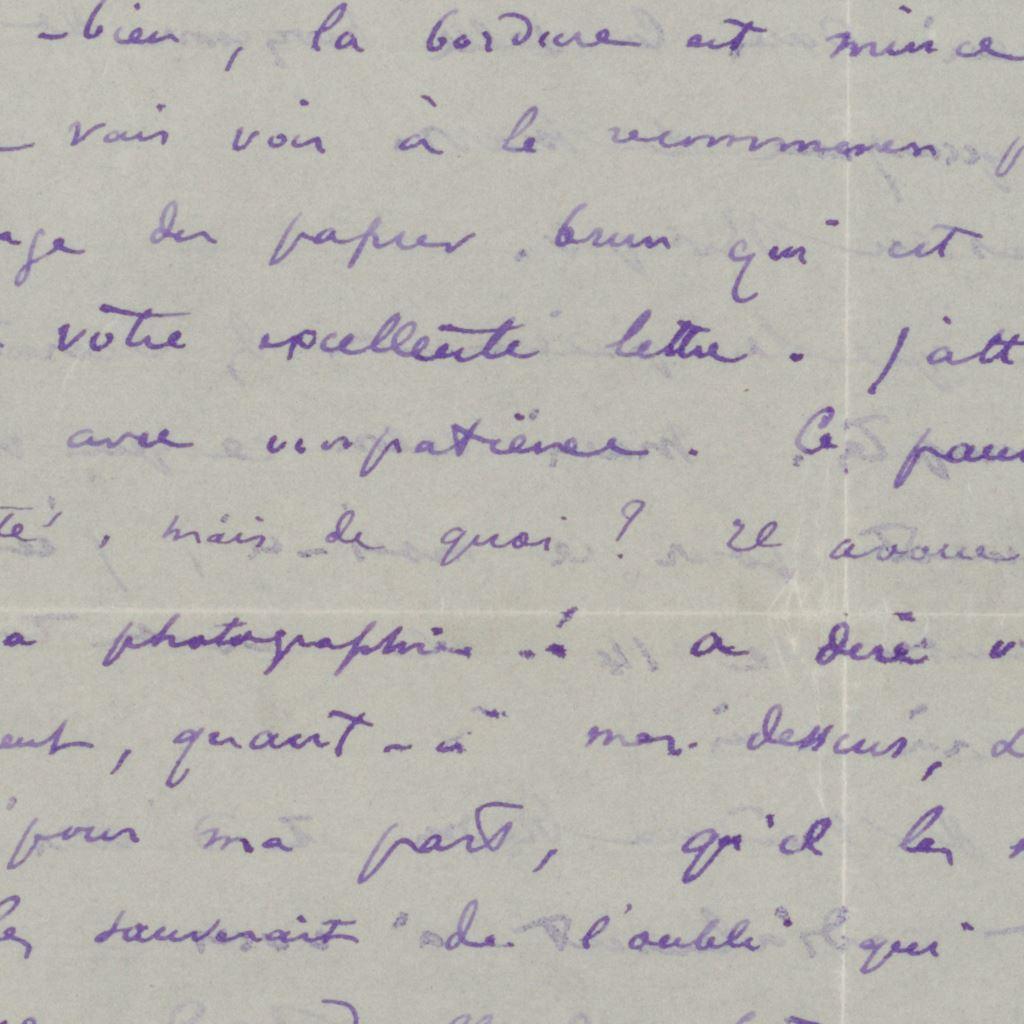 -bien, la bordure est mince
vais voir à le recommencer
du papier brun qui est
votre excellente lettre. J'att
avec impatience. Ce pauv
té, mais de quoi ? Il avoue
a photographie ! a désiré
ent, quant-à mes dessins,
pour ma part, qu'il les
les sauverait de l'oubli qui